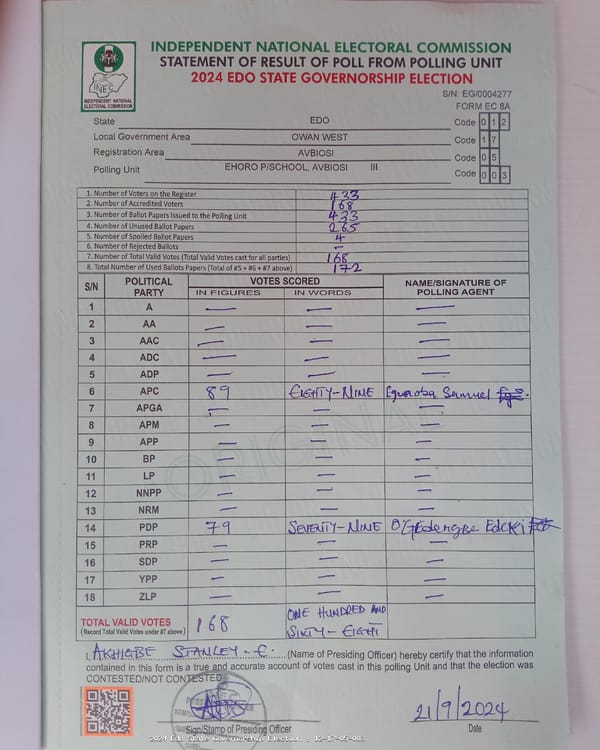 INDEPENDENT NATIONAL ELECTORAL COMMISSION
STATEMENT OF RESULT OF POLL FROM POLLING UNIT
2024 EDO STATE GOVERNORSHIP ELECTION
INEC
INDEPENDENT NATIONAL ELECTORAL COMMISSION
S/N: EG/0004277
FORM EC 8A
State EDO Code 0 1 2
Local Government Area OWAN WEST Code 1 7
Registration Area AVBIOSI Code 0 5
Polling Unit EHORO P/SCHOOL, AVBIOSI III Code 0 0 3
1. Number of Voters on the Register 433
2. Number of Accredited Voters 168
3. Number of Ballot Papers Issued to the Polling Unit 433
4. Number of Unused Ballot Papers 265
5. Number of Spoiled Ballot Papers 4
6. Number of Rejected Ballots —
7. Number of Total Valid Votes (Total Valid Votes cast for all parties) 168
8. Total Number of Used Ballots Papers (Total of #5 + #6 + #7 above) 172
S/N POLITICAL PARTY VOTES SCORED NAME/SIGNATURE OF POLLING AGENT
IN FIGURES IN WORDS
1 A — — —
2 AA — — —
3 AAC — — —
4 ADC — — —
5 ADP — — —
6 APC 89 EIGHTY-NINE Samuel
7 APGA — — —
8 APM — — —
9 APP — — —
10 BP — — —
11 LP — — —
12 NNPP — — —
13 NRM — — —
14 PDP 79 SEVENTY-NINE
15 PRP — — —
16 SDP — — —
17 YPP — — —
18 ZLP — — —
TOTAL VALID VOTES 168 ONE HUNDRED AND
(Record Total Valid Votes under #7 above) SIXTY-EIGHT
I, AKHIGBE STANLEY-E. (Name of Presiding Officer) hereby certify that the information
contained in this form is a true and accurate account of votes cast in this polling Unit and that the election was
CONTESTED/NOT CONTESTED
21/9/2024
Sign/Stamp of Presiding Officer Date
2024 Edo State Governorship Election - 12-17-05-003
ORIGINAL